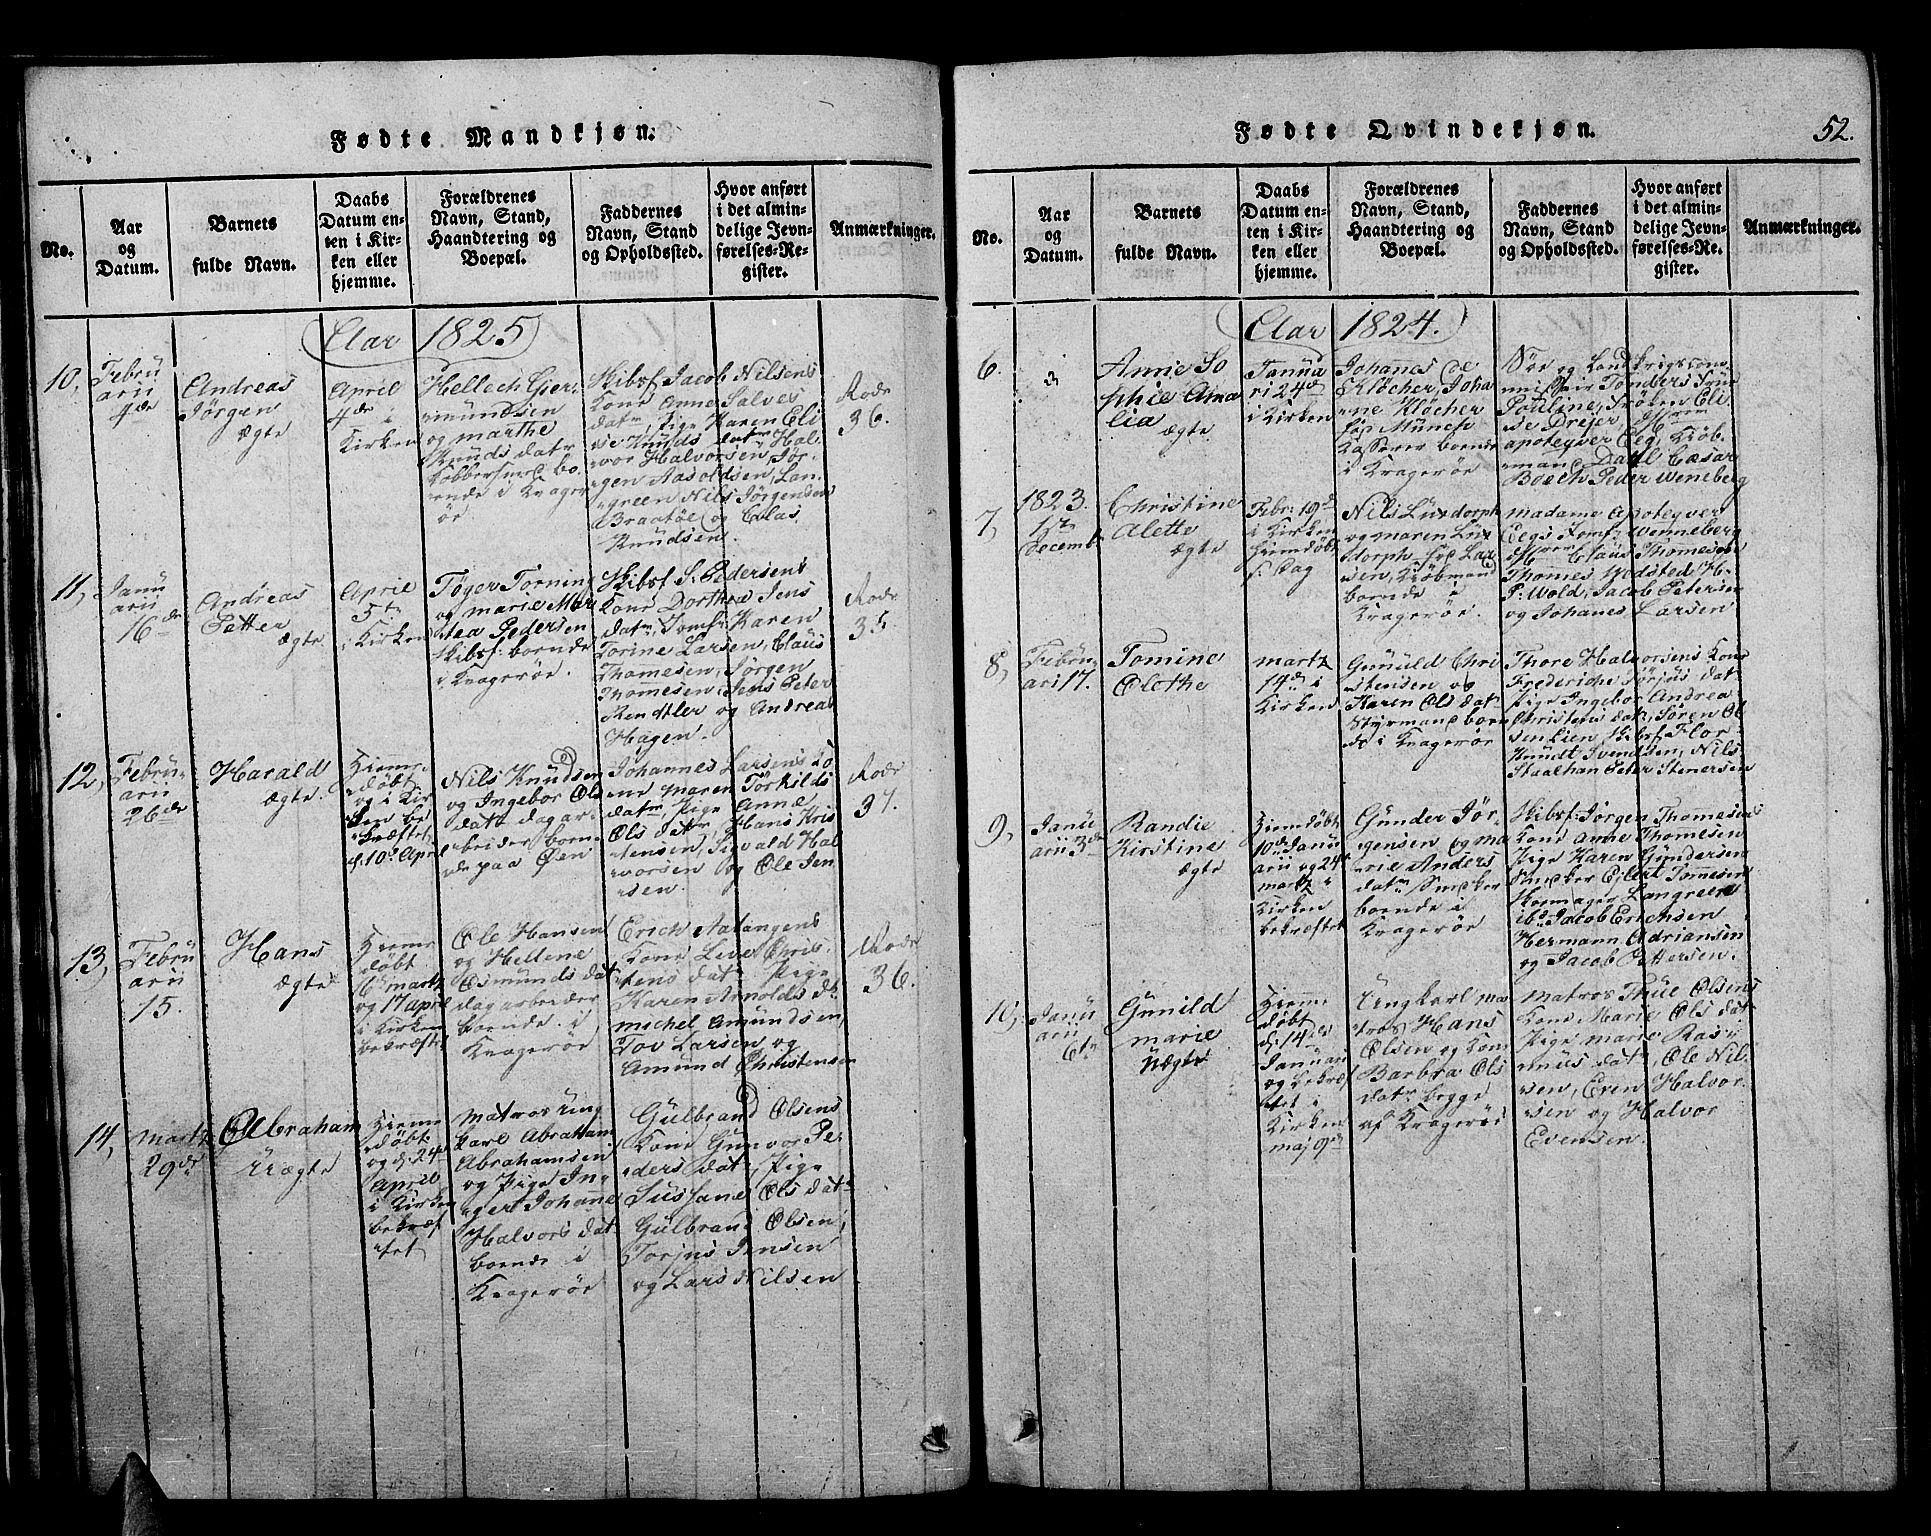 Fødte Mandkjøn.
No.
Aar
og
Datum.
Barnets
fulde Navn.
Daabs
Datum en-
ten i Kir-
ken eller
hjemme.
Forældrenes
Navn, Stand,
Haandtering og
Boepæl.
Faddernes
Navn, Stand
og Opholdssted.
Hvor anført
i det almin-
delige Jevn-
førelses-Re-
gister.
Anmærkninger.
Aar 1825
10,
Febru
arii
4de
Andreas
Jørgen
ægte
April
4de i
Kirken
Hellech Ger-
mundsen
og Marthe
Knuds datr
Kobbersmed bo-
ende i Krager
öe
Skibsf Jacob Nilsens
Kone Anne Salves
datr, Pige Karen Eli
se Knuds datr Hal-
vor Halvorsen, Jør-
gen Aasoldsen, Lan-
green Nils Jørgensen
Braatöe og Clas
Knudsen.
Rode
36.
11,
Janu
arii
16de
Andreas
Petter
ægte
April
5te
i Kirken
Föger Forning
og Marie Mar
tea Pedersen
Skibsf: boende
i Kragerøe.
Skibsf S. Pedersens
Kone Dorthea Jens
datr, Jomfr Karen
Torine Larsen, Claus
Thomesen, Jørgen
Thomesen, Jens Peter
Rendtler og Andreas
Hagen.
Rode
35.
12,
Febru-
arii
26de
Harald
ægte.
Hjemme
døbt
og i Kir
ken be
kræftet
d. 10: April
Nils Knudsen
og Ingebor Ols
datr dagar-
beider boen-
de paa Øen
Johannes Larsens Ko
ne Maren Torkilds
datr, Pige Anne
Ols datr, Hans Kris
tensen, Sigvald Hal
vorsen og Ole Jen
sen.
Rode
37.
13,
Febru
arii
15.
Hans
ægte
Hjemme
døbt
16 Martz
og 17 April
i Kirken
bekræftet
Ole Hansen
og Hellene
Osmunds dat
dagarbeider
boende i
Kragerøe
Erich Aatangens
Kone Live Chris-
tens datr Pige
Karen Arnolds dr
Michel Amundsen,
Tov Larsen og
Amund Christensen
Rode
36.
14,
Martz
29de
Abraham
Uægte
Hjemme
døbt
og d. 24de
April
i Kirken
bekræf
tet
Matros Ung
karl Abraham
Abrahamsen
og Pige In-
ger Johanne
Halvors dat
boende i
Kragerøe
Gulbrand Olsens
Kone Gunvor Pe-
ders datr, Pige
Sussane Ols datr
Gulbrand Olsen,
Torjus Jensen
og Lars Nilsen
Fødte Qvindekjøn.
52.
No.
Aar
og
Datum.
Barnets
fulde Navn.
Daabs
Datum en-
ten i Kir-
ken eller
hjemme.
Forældrenes
Navn, Stand,
Haandtering og
Boepæl.
Faddernes
Navn, Stand
og Opholdssted.
Hvor anført
i det almin-
delige Jevn-
førelses-Re-
gister.
Anmærkninger.
Aar 1824.
6.
Anne So
phie Ama
lia
ægte
Janua
ri 24de
i Kirken
Johannes de
Klöcher, Joha
nne Klöcher
föd Münch
Kasserer boende
i Kragerøe
Söe og Land Krigscom-
missair Tonders Frue
Pauline, Frøken Eli
se Drejer, Herrer
Apoteqver Eeg, Kiöb-
mand Dahl Cæsar
Boech Peder Weneberg
7,
1823.
1te
Decembr
Christine
Alette
ægte
Febr: 19de
i Kirken
Hjemdøbt
s. Dag
Nils Luxdorph
og Maren Lux
dorph föd Lar
sen, Kiöbmand
boende i
Kragerøe.
Madame Apoteqver
Eegs Jomf: Wenneberg
Herrer Claus Thomesen
Thomes Wodsted H-
P. Wold, Jacob Petersen
og Johanes Larsen
8,
Febru-
ari 17.
Tomine
Olethe
Martz
14de i
Kirken
Gunuld Chri
stensen og
Karen Ols dat
Styrmand boen
de i Kragerøe
Thore Halvorsens Kone
Frederiche Törjus dat
Pige Ingebor Andrea
Christens datr, Sören Ol
sen Lien Skibsf Flor
Knudt Svendsen, Nils
Staalhan Peter Stenersen
9,
Janu
arii 3de
Randie
Kirstine
ægte
Hjemdøbt
10de Janu
arii og 24de
Martz i
Kirken
bekræftet
Gunder Jör
gensen og Ma
rie Anders
datr Snecker
boende i
Kragerøe
Skibsf: Jørgen Thomesens
Kone Anne Thomesen
Pige Karen Gundersen
Snecker Eilert Tomesen
Skomager Langreen
ibd Jacob Erichsen
Hermann Adriansen
og Jacob Pettersen.
10,
Janu
arii
6te
Gunild
Marie
Uægte
Hjemme
døbt
d. 14de
Januari
og bekræf
tet i
Kirken
Maj 9de
Ungkarl Ma
tros Hans
Olsen og Kon
Barbra Ols
datr begge
af Kragerøe
Matros Thue Olsens
Kone Marie Ols datr
Pige Marie Ras-
mus datr, Ole Nil-
sen, Even Halvor-
sen og Halvor
Evensen.